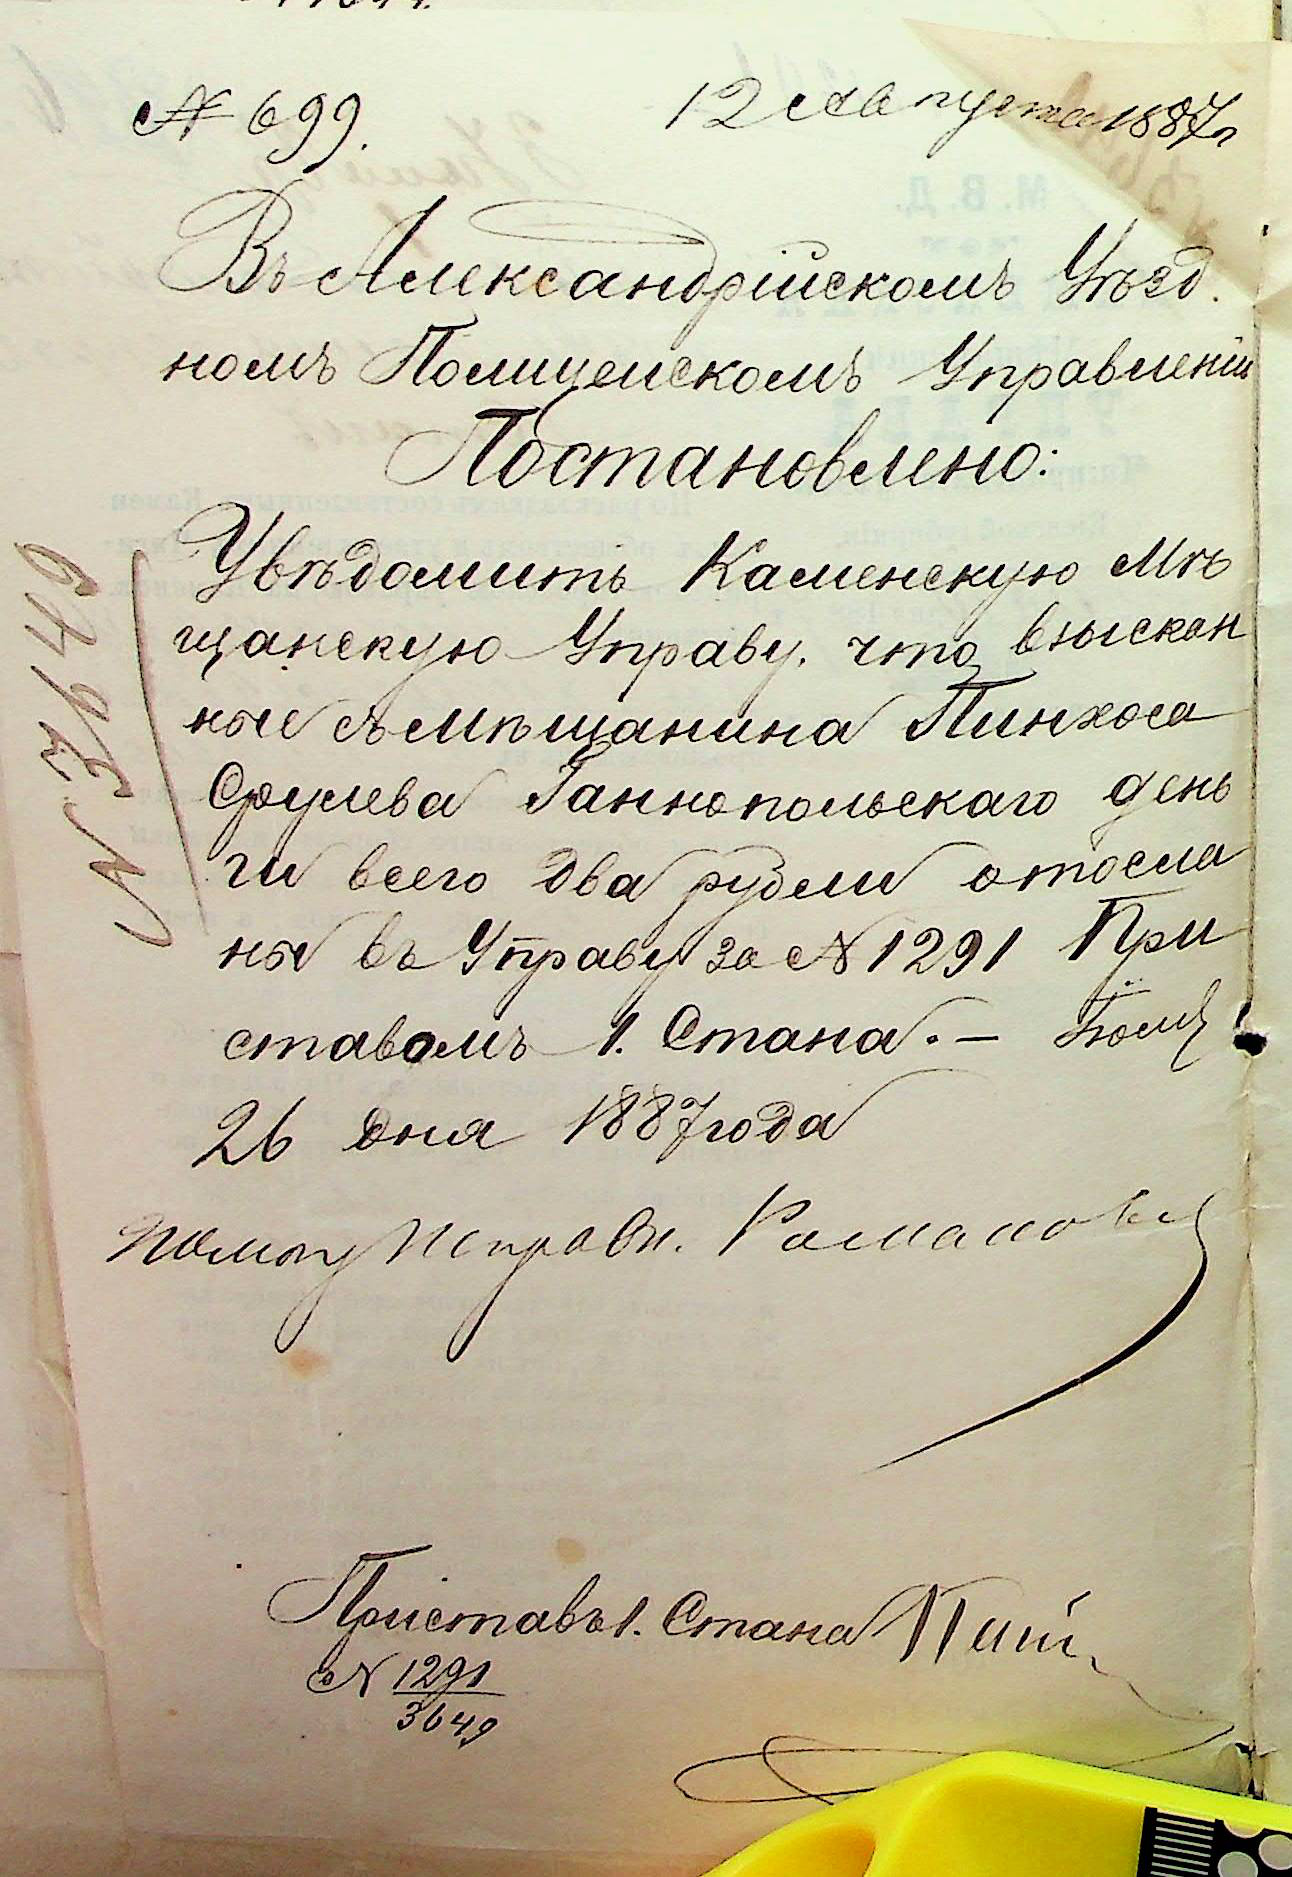 № 699.
12 Августа 1887г
Въ Александрійскомъ Уѣзд.
номъ Полицейскомъ Управленіи
Постановлено:
Увѣдомить Каменскую Мѣ
щанскую Управу, что взыскан
ные съ мѣщанина Пинхоса
Срулева Ганнопольскаго день
ги всего два рубли отосла
ны въ Управу за № 1291 При
ставомъ 1. Стана. — Іюля
26 дня 1887 года
Помощ Исправн. Романов
Приставъ 1. Стана
№ 1291
3649
№ 3649